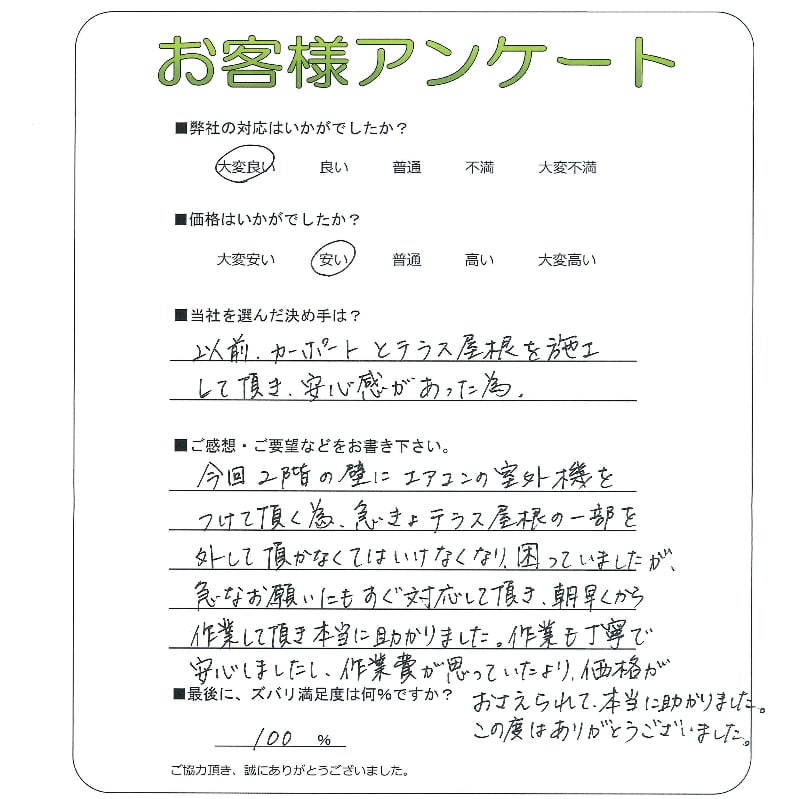 お客様アンケート
■弊社の対応はいかがでしたか?
大変良い 良い 普通 不満 大変不満
■価格はいかがでしたか?
大変安い 安い 普通 高い 大変高い
■当社を選んだ決め手は?
以前、カーポートとテラス屋根を施工
して頂き、安心感があった為。
■ご感想・ご要望などをお書き下さい。
今回2階の壁にエアコンの室外機を
つけて頂く為、急きょテラス屋根の一部を
外して頂かなくてはいけなくなり、困っていましたが、
急なお願いにもすぐ対応して頂き、朝早くから
作業して頂き本当に助かりました。作業も丁寧で
安心しましたし、作業費が思っていたより、価格が
おさえられて、本当に助かりました。
この度はありがとうございました。
■最後に、ズバリ満足度は何%ですか?
100 %
ご協力頂き、誠にありがとうございました。